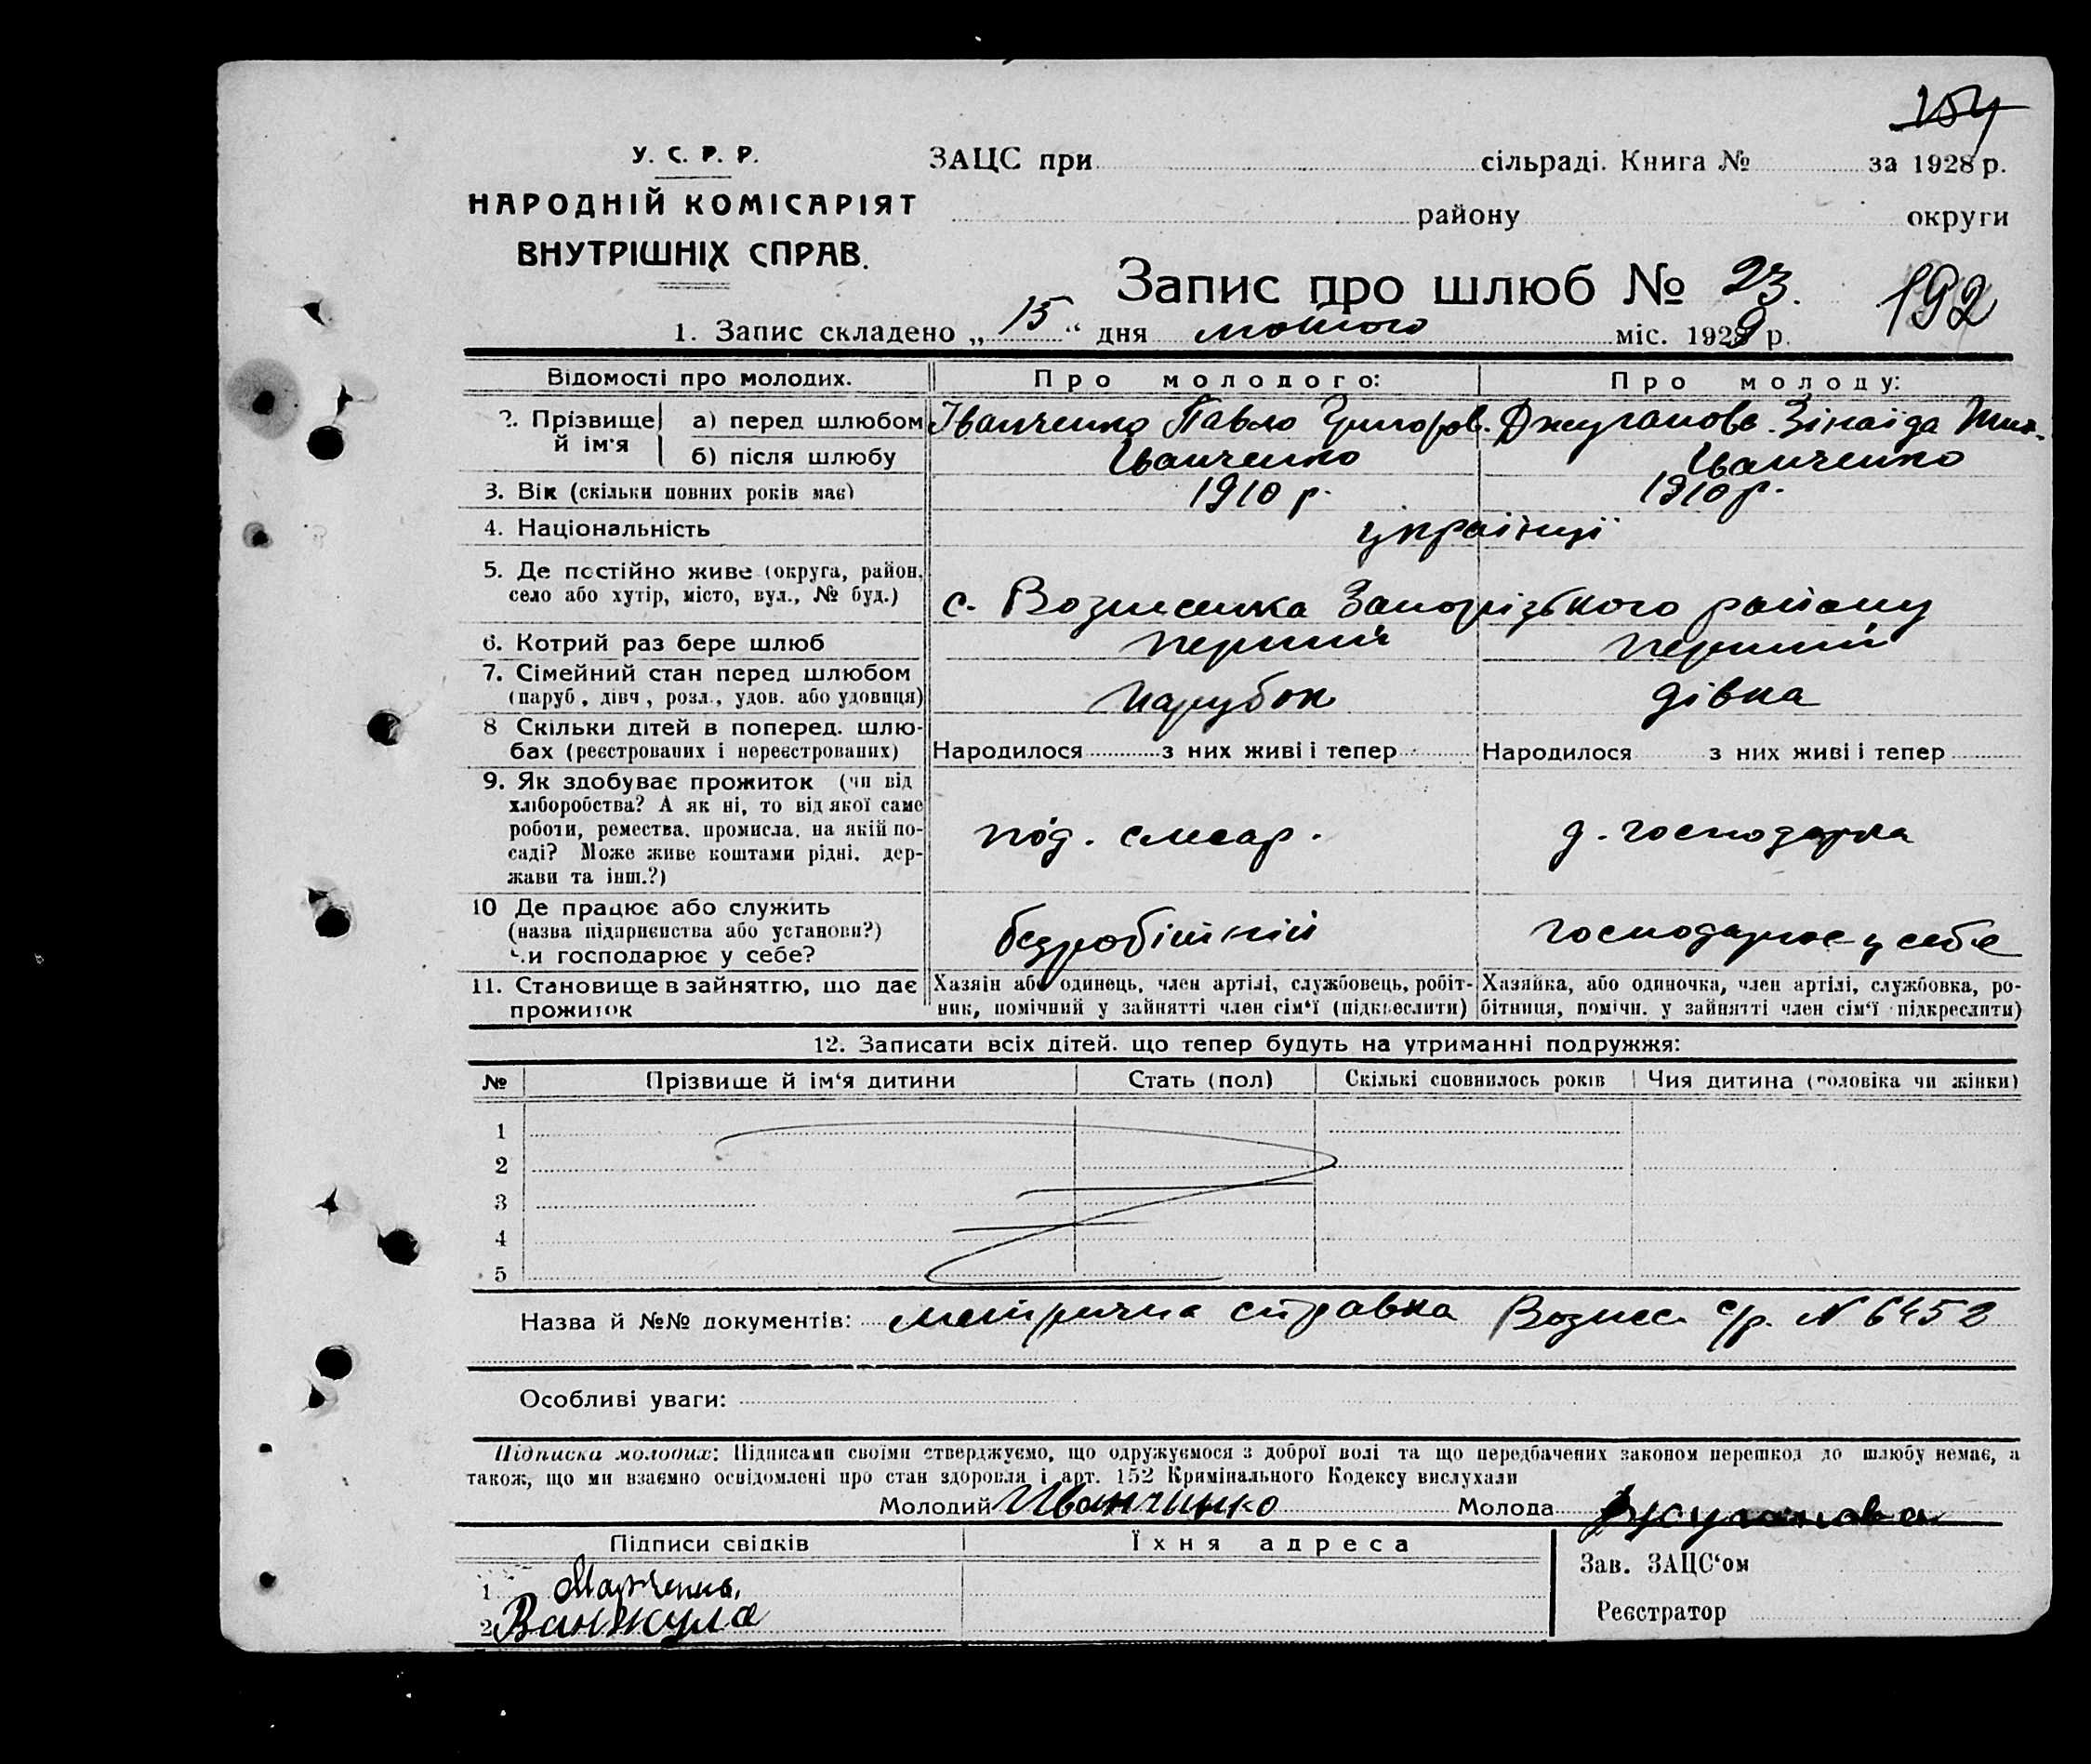 184
У. С. Р. Р.
НАРОДНІЙ КОМІСАРІЯТ
ВНУТРІШНІХ СПРАВ.
ЗАЦС при сільраді. Книга № за 1928 р.
району округи
Запис про шлюб № 23. 192
1. Запис складено „ 15 “ дня лютого міс. 1929 р.
Відомості про молодих. Про молодого: Про молоду:
2. Прізвище й ім'я а) перед шлюбом Іванченко Павло Григоров. Джуганова Зінаїда
б) після шлюбу Іванченко Іванченко
3. Вік (скільки повних років має) 1910 р. 1910 р.
4. Національність українці
5. Де постійно живе (округа, район, село або хутір, місто, вул., № буд.) с. Вознесенка Запорізького району
6. Котрий раз бере шлюб перший перший
7. Сімейний стан перед шлюбом
(паруб, дівч, розл., удов. або удовиця) парубок дівка
8 Скільки дітей в поперед. шлю-
бах (реєстрованих і нереєстрованих) Народилося з них живі і тепер Народилося з них живі і тепер
9. Як здобуває прожиток (чи від
хліборобства? А як ні, то від якої саме
роботи, ремества, промисла, на якій по-
саді? Може живе коштами рідні, дер-
жави та інш.?) під. слюсар. д. господарка
10 Де працює або служить
(назва підприємства або установи?)
Чи господарює у себе? безробітній господарює у себе
11. Становище в зайняттю, що дає
прожиток
Хазяїн або одинець, член артілі, службовець, робіт-
ник, помічний у зайнятті член сім‘ї (підкреслити)
Хазяйка, або одиночка, член артілі, службовка, ро-
бітниця, помічн. у зайнятті член сім‘ї підкреслити)
12. Записати всіх дітей, що тепер будуть на утриманні подружжя:
№ Прізвище й ім‘я дитини Стать (пол) Скількі сповнилось років Чия дитина (чоловіка чи жінки)
1
2
3
4
5
Назва й №№ документів: метрична справка Вознес. с/р. N 6452
Особливі уваги:
Підписка молодих: Підписами своїми стверджуємо, що одружуємося з доброї волі та що передбачених законом перешкод до шлюбу немає, а
також, що ми взаємно освідомлені про стан здоровля і арт. 152 Кримінального Кодексу вислухали
Молодий Иванчинко Молода Джуганова
Підписи свідків Їхня адреса
Зав. ЗАЦС‘ом
1.
2 Ванжула
Реєстратор